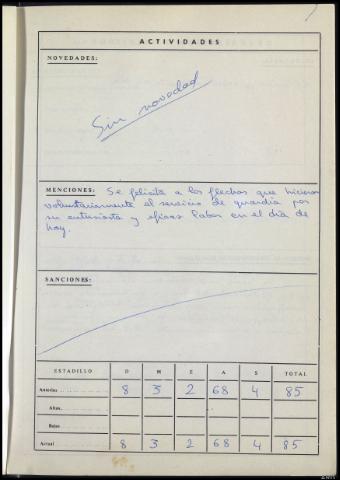 ACTIVIDADES
NOVEDADES:
Sin novedad
MENCIONES: Se felicita a los flechas que hicieron
voluntariamente el servicio de guardia por
su entusiasta y eficaz labor en el día de
hoy.
SANCIONES:
ESTADILLO D M E A S TOTAL
Anterior 8 3 2 68 4 85
Altas
Bajas
Actual 8 3 2 68 4 85